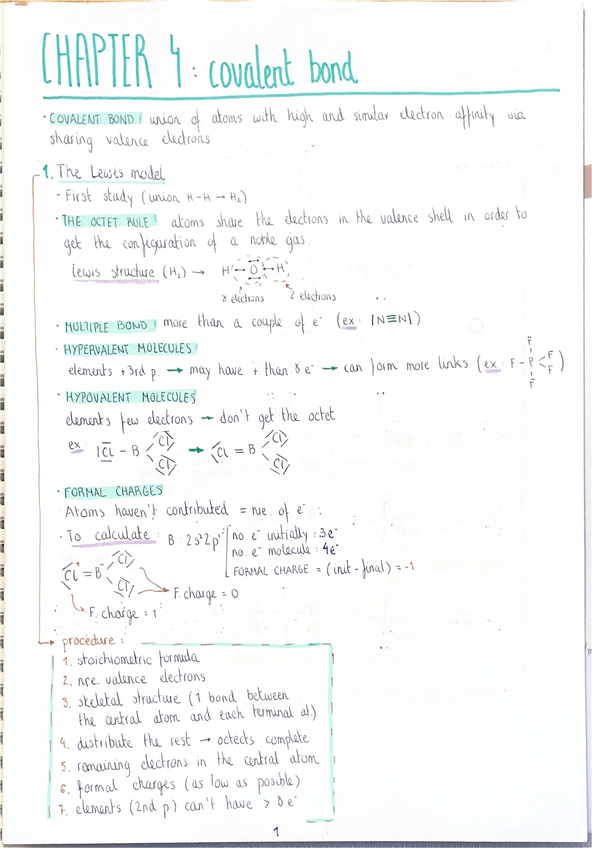 CHAPTER 4: covalent bond
· COVALENT BOND / union of atoms with high and similar electron affinity via
sharing valence electrons
1. The Lewis model
- First study (union H-H → H₂)
· THE OCTET RULE / atoms share the electrons in the valence shell in order to
get the configuration of a noble gas.
Lewis structure (H₂) → H - O - H
8 electrons 2 electrons
· MULTIPLE BOND / more than a couple of e⁻ (ex: |N≡N|)
· HYPERVALENT MOLECULES
elements +3rd p. → may have + than 8 e⁻ → can form more links (ex: F-P F F F F)
· HYPOVALENT MOLECULES
elements few electrons → don't get the octet
ex: |Cl - B Cl Cl → Cl = B Cl Cl
· FORMAL CHARGES
Atoms haven't contributed = nre. of e⁻
- To calculate: B: 2s²2p¹
no. e⁻ initially: 3e⁻
no. e⁻ molecule: 4e⁻
FORMAL CHARGE = (init - final) = -1
Cl⁺ = B⁻ Cl Cl
F. charge = 0
F. charge = 1
procedure:
1. stoichiometric formula
2. nre. valence electrons
3. skeletal structure (1 bond between
the central atom and each terminal at.)
4. distribute the rest → octects complete
5. remaining electrons in the central atom
6. formal charges (as low as posible)
7. elements (2nd p) can't have > 8 e⁻
1